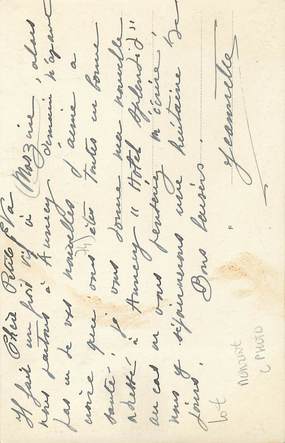 Chère Petite Eva
Il fait un froid ici à Morzine, alors
nous partons à Annecy demain n'ayant
pas eu de vos nouvelles j'aime à
croire que vous êtes toutes en bonne
santé, je vous donne ma nouvelle
adresse à Annecy "Hôtel Splendid"
au cas où vous penseriez m'écrire,
nous y séjournerons une huitaine de
jours. Bons baisers.
Jeannette
Lot
PHOTO